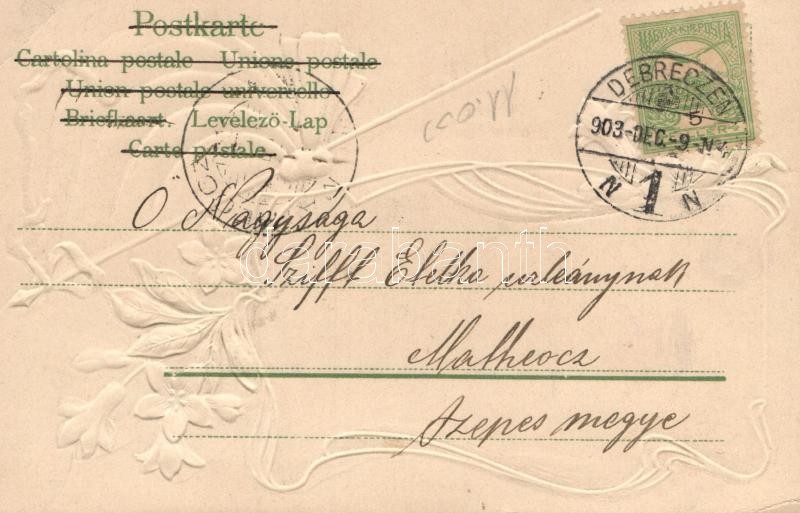 Postkarte
Cartolina postale Unione postale
Union postale universelle
Briefkaart. Levelezö-Lap
Carte postale
MAGYAR KIR. POSTA
DEBRECZEN
5
903-DEC.-9.-N4
N 1 N
Ő Nagysága
Szifft Etelka urleánynak
Matheocz
Szepes megye
darabanth